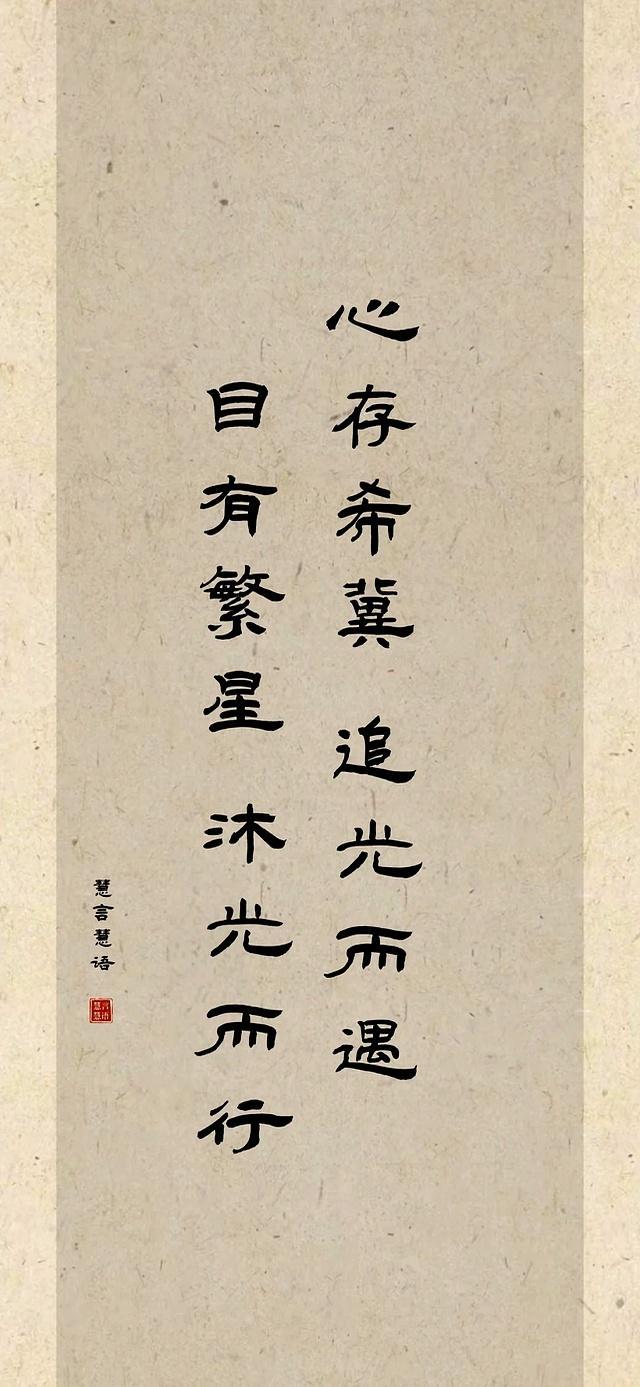 心存希冀 追光而遇
目有繁星 沐光而行
慧言慧语
慧慧言语